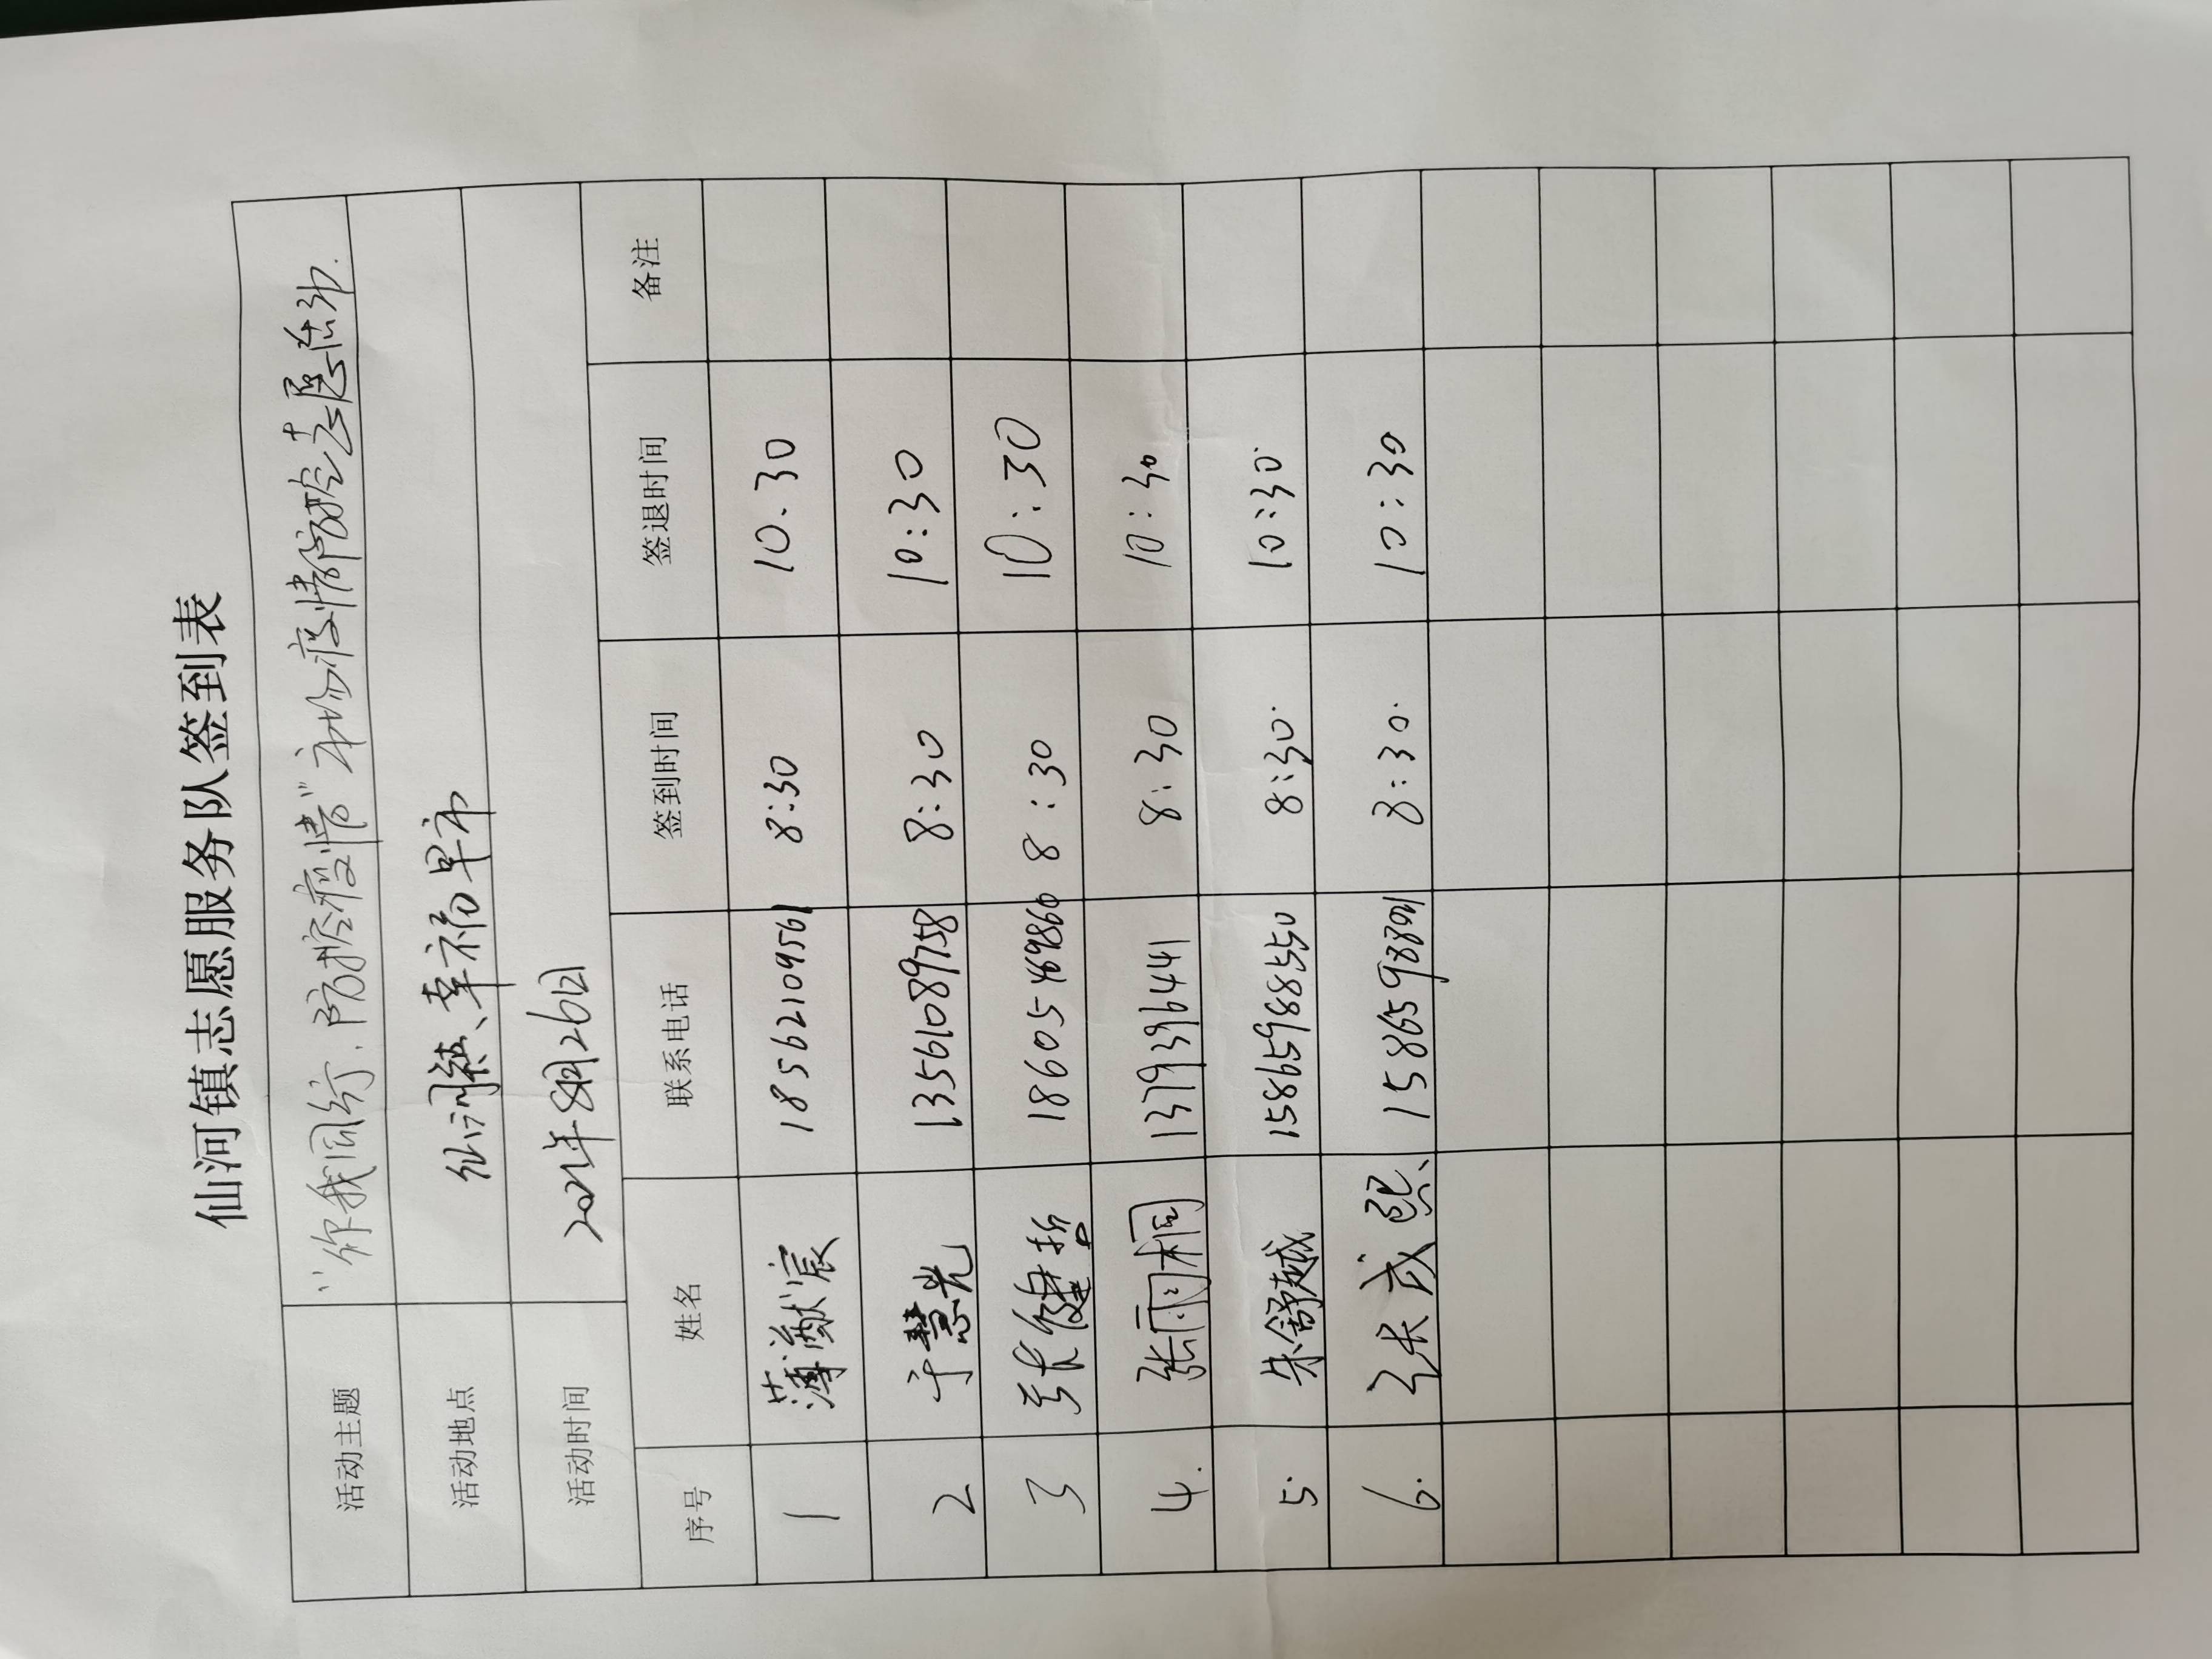 仙河镇志愿服务队签到表
活动主题 "你我同行,防控疫情"市场疫情防控志愿活动.
活动地点 仙河镇、幸福早市
活动时间 2021年8月26日
序号 姓名 联系电话 签到时间 签退时间 备注
1 薄猷宸 18562109561 8:30 10.30
2 于慧光 13561089758 8:30 10:30
3 张健哲 18605469860 8:30 10:30
4. 张雨桐 13793996441 8:30 10:30
5. 朱舒越 15865988550 8:30. 10:30.
6. 张成熙、 15865988901 8:30. 10:30